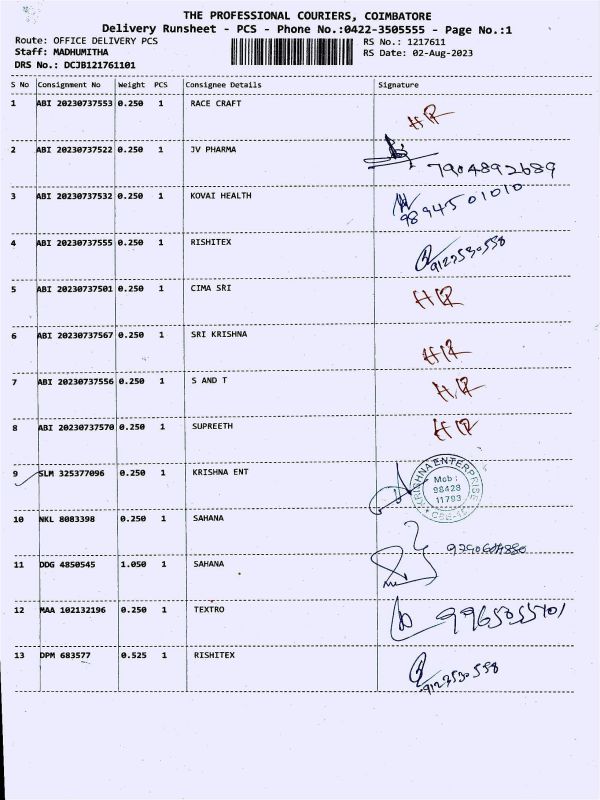 THE PROFESSIONAL COURIERS, COIMBATORE
Delivery Runsheet - PCS - Phone No.:0422-3505555 - Page No.:1
Route: OFFICE DELIVERY PCS RS No.: 1217611
Staff: MADHUMITHA RS Date: 02-Aug-2023
DRS No.: DCJB121761101
S No Consignment No Weight PCS Consignee Details Signature
1 ABI 20230737553 0.250 1 RACE CRAFT HR
2 ABI 20230737522 0.250 1 JV PHARMA 7904892689
3 ABI 20230737532 0.250 1 KOVAI HEALTH 9894501010
4 ABI 20230737555 0.250 1 RISHITEX
5 ABI 20230737501 0.250 1 CIMA SRI HR
6 ABI 20230737567 0.250 1 SRI KRISHNA HR
7 ABI 20230737556 0.250 1 S AND T HR
8 ABI 20230737570 0.250 1 SUPREETH HR
9 SLM 325377096 0.250 1 KRISHNA ENT
KRISHNA ENTERPRISE
Mob :
98428
11793
10 NKL 8083398 0.250 1 SAHANA
11 DDG 4850545 1.050 1 SAHANA
12 MAA 102132196 0.250 1 TEXTRO
13 DPM 683577 0.525 1 RISHITEX